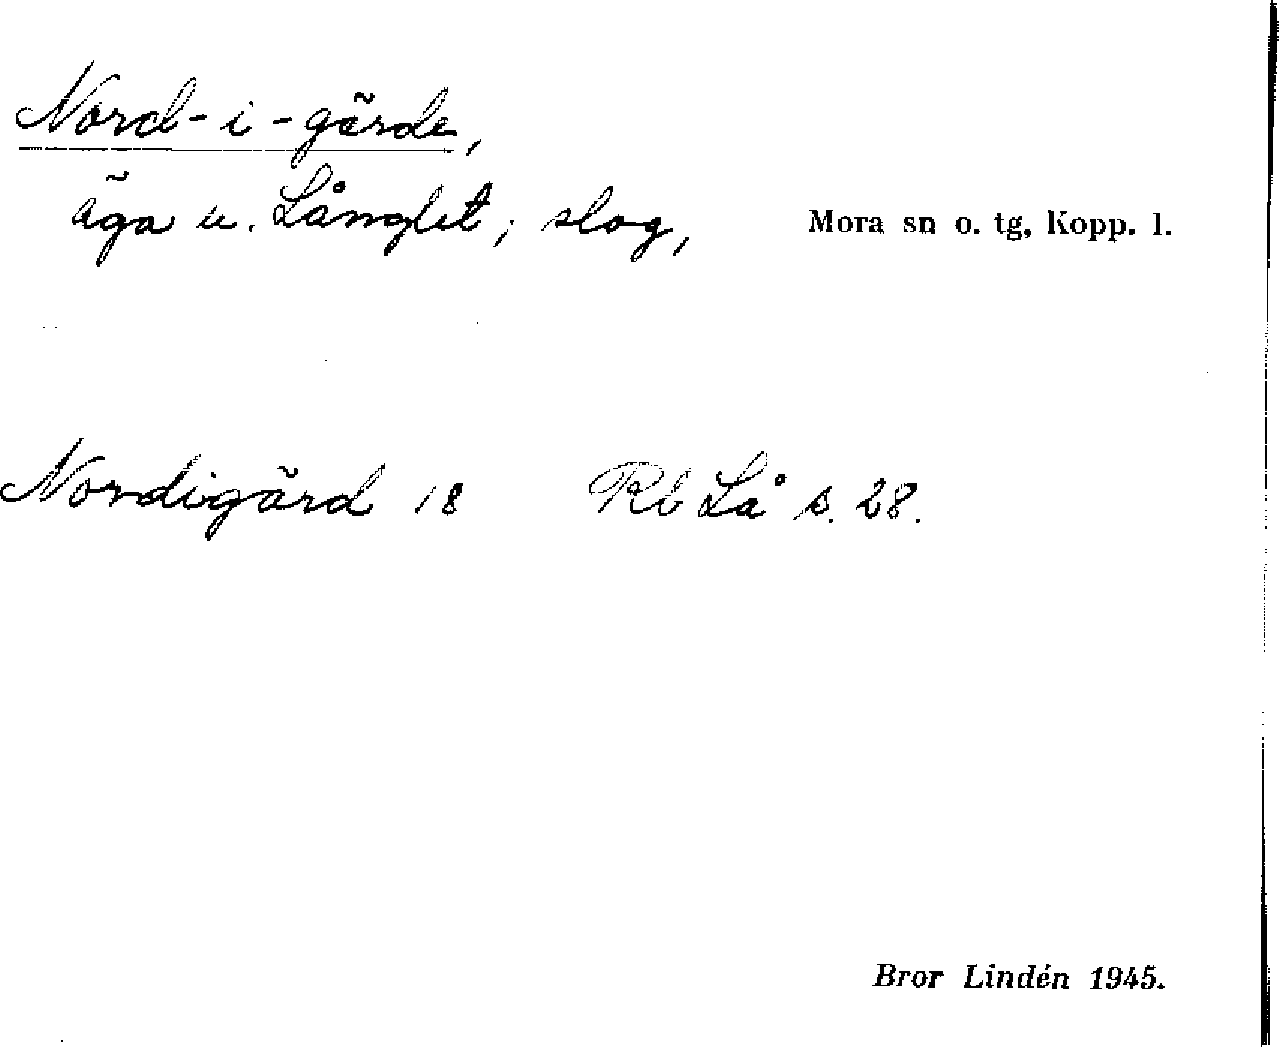 Nord-i-gärde,
äga u. Långlet; slog, Mora sn o. tg, Kopp. l.
Nordigärd 18 Rb Lå s. 28.
Bror Lindén 1945.